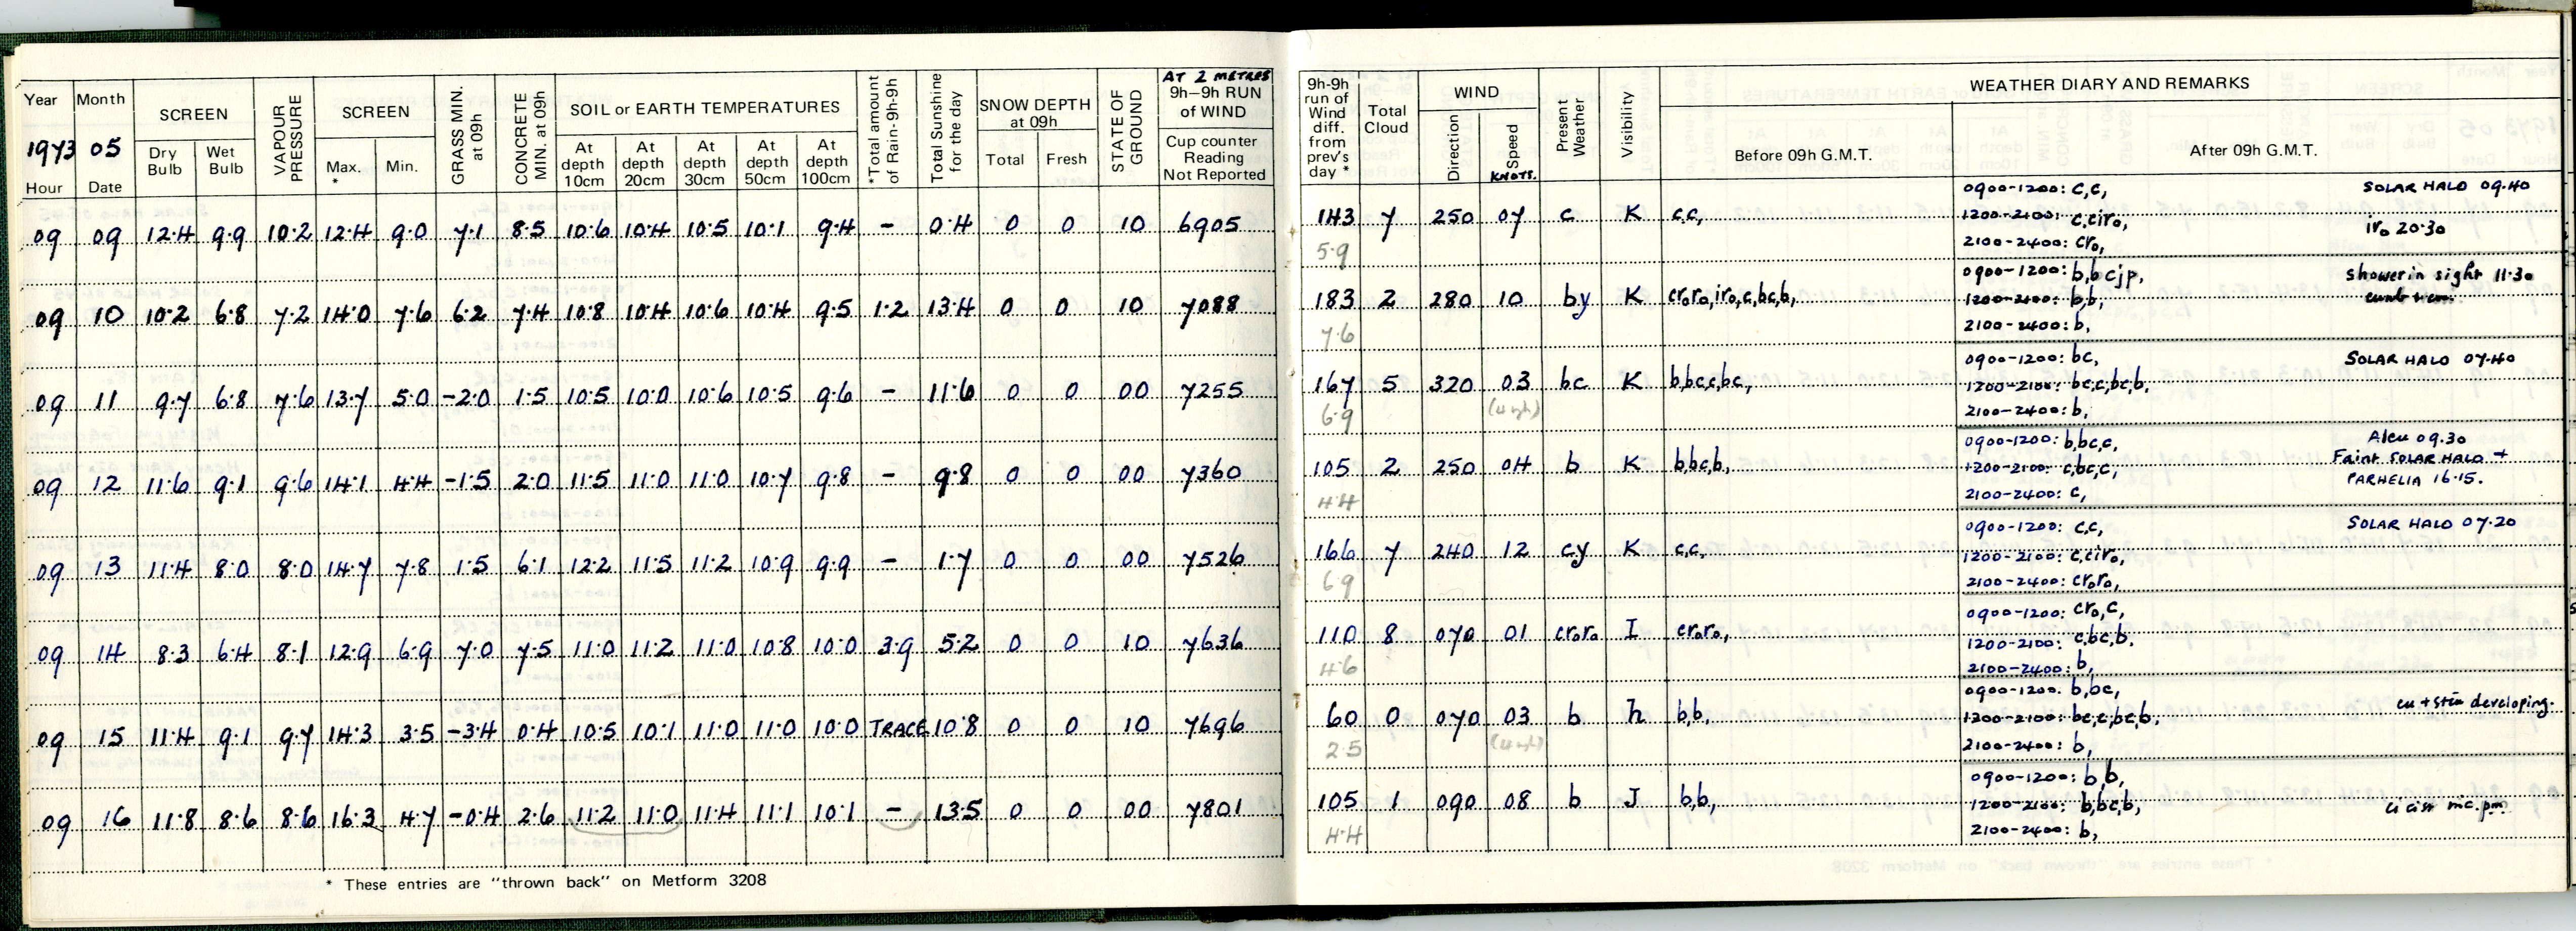 Year Month SCREEN VAPOUR PRESSURE SCREEN GRASS MIN. at 09h CONCRETE MIN. at 09h SOIL or EARTH TEMPERATURES *Total amount of Rain-9h-9h Total Sunshine for the day SNOW DEPTH at 09h STATE OF GROUND AT 2 METRES 9h–9h RUN of WIND
1973 05 Dry Bulb Wet Bulb Max. * Min. At depth 10cm At depth 20cm At depth 30cm At depth 50cm At depth 100cm Total Fresh Cup counter Reading Not Reported
Hour Date
09 09 12.4 9.9 10.2 12.4 9.0 7.1 8.5 10.6 10.4 10.5 10.1 9.4 - 0.4 0 0 10 6905
09 10 10.2 6.8 7.2 14.0 7.6 6.2 7.4 10.8 10.4 10.6 10.4 9.5 1.2 13.4 0 0 10 7088
09 11 9.7 6.8 7.6 13.7 5.0 -2.0 1.5 10.5 10.0 10.6 10.5 9.6 - 11.6 0 0 00 7255
09 12 11.6 9.1 9.6 14.1 4.4 -1.5 2.0 11.5 11.0 11.0 10.7 9.8 - 9.8 0 0 00 7360
09 13 11.4 8.0 8.0 14.7 7.8 1.5 6.1 12.2 11.5 11.2 10.9 9.9 - 1.7 0 0 00 7526
09 14 8.3 6.4 8.1 12.9 6.9 7.0 7.5 11.0 11.2 11.0 10.8 10.0 3.9 5.2 0 0 10 7636
09 15 11.4 9.1 9.7 14.3 3.5 -3.4 0.4 10.5 10.1 11.0 11.0 10.0 TRACE 10.8 0 0 10 7696
09 16 11.8 8.6 8.6 16.3 4.7 -0.4 2.6 11.2 11.0 11.4 11.1 10.1 - 13.5 0 0 00 7801
* These entries are "thrown back" on Metform 3208
9h-9h run of Wind diff. from prev's day * Total Cloud WIND Present Weather Visibility WEATHER DIARY AND REMARKS
Direction Speed KNOTS. Before 09h G.M.T. After 09h G.M.T.
0900-1200: c,c, SOLAR HALO 09.40
143 7 250 07 c K c,c, 1200-2100: c,ciro, iro 20.30
5.9 2100-2400: cro,
0900-1200: b,bcjp, shower in sight 11.30
183 2 280 10 by K croro,iro,c,bc,b, 1200-2100: b,b,
7.6 2100-2400: b,
0900-1200: bc, SOLAR HALO 07.40
167 5 320 03 bc K b,bc,c,bc, 1200-2100: bc,c,bc,b,
6.9 2100-2400: b,
0900-1200: b,bc,c, Alcu 09.30
105 2 250 04 b K b,bc,b, 1200-2100: c,bc,c, Faint SOLAR HALO +
4.4 2100-2400: c, PARHELIA 16.15.
0900-1200: c,c, SOLAR HALO 07.20
166 7 240 12 cy K c,c, 1200-2100: c,ciro,
6.9 2100-2400: croro,
0900-1200: cro,c,
110 8 070 01 croro I croro, 1200-2100: c,bc,b,
4.6 2100-2400: b,
0900-1200. b,bc, cu + stcu developing.
60 0 070 03 b h b,b, 1200-2100: bc,c,bc,b,
2.5 2100-2400: b,
0900-1200: b,b,
105 1 090 08 b J b,b, 1200-2100: b,bc,b,
4.4 2100-2400: b,